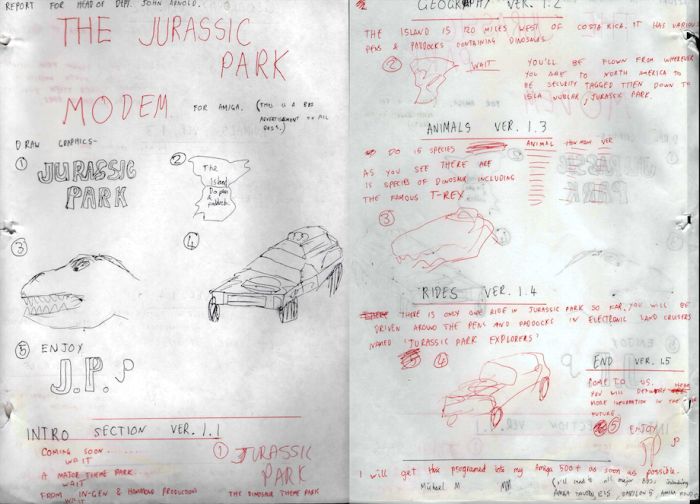 REPORT FOR HEAD OF DEPT. JOHN ARNOLD.
THE JURASSIC
PARK
MODEM
FOR AMIGA. (THIS IS A BBS
ADVERTISEMENT TO ALL
BBS's.)
DRAW GRAPHICS-
①
JURASSIC
PARK
②
The
Island
③
④
⑤ ENJOY
J.P.
INTRO SECTION VER. 1.1
COMING SOON
WAIT
A MAJOR THEME PARK
WAIT
FROM IN-GEN & HAMMOND PRODUCTIONS
WAIT
① JURASSIC
PARK
THE DINOSAUR THEME PARK
GEOGRAPHY VER. 1.2
THE ISLAND IS 120 MILES WEST OF COSTA RICA. IT HAS VARIOUS
PENS & PADDOCKS CONTAINING DINOSAURS
②
WAIT
YOU'LL BE FLOWN FROM WHEREVER
YOU ARE TO NORTH AMERICA TO
BE SECURITY TAGGED THEN DOWN TO
ISLA NUBLAR, JURASSIC PARK.
ANIMALS VER. 1.3
DO 15 SPECIES
ANIMAL
VER
AS YOU SEE THERE ARE
15 SPECIES OF DINOSAUR INCLUDING
THE FAMOUS T-REX
③
RIDES VER. 1.4
THERE IS ONLY ONE RIDE IN JURASSIC PARK SO FAR. YOU WILL BE
DRIVEN AROUND THE PENS AND PADDOCKS IN ELECTRONIC LAND CRUISERS
NAMED 'JURASSIC PARK EXPLORERS'
④
END VER. 1.5
COME TO US.
YOU WILL
MORE INFORMATION IN THE
FUTURE
⑤
ENJOY
JP
I will get this programed into my Amiga 500+ as soon as possible.
Michael M